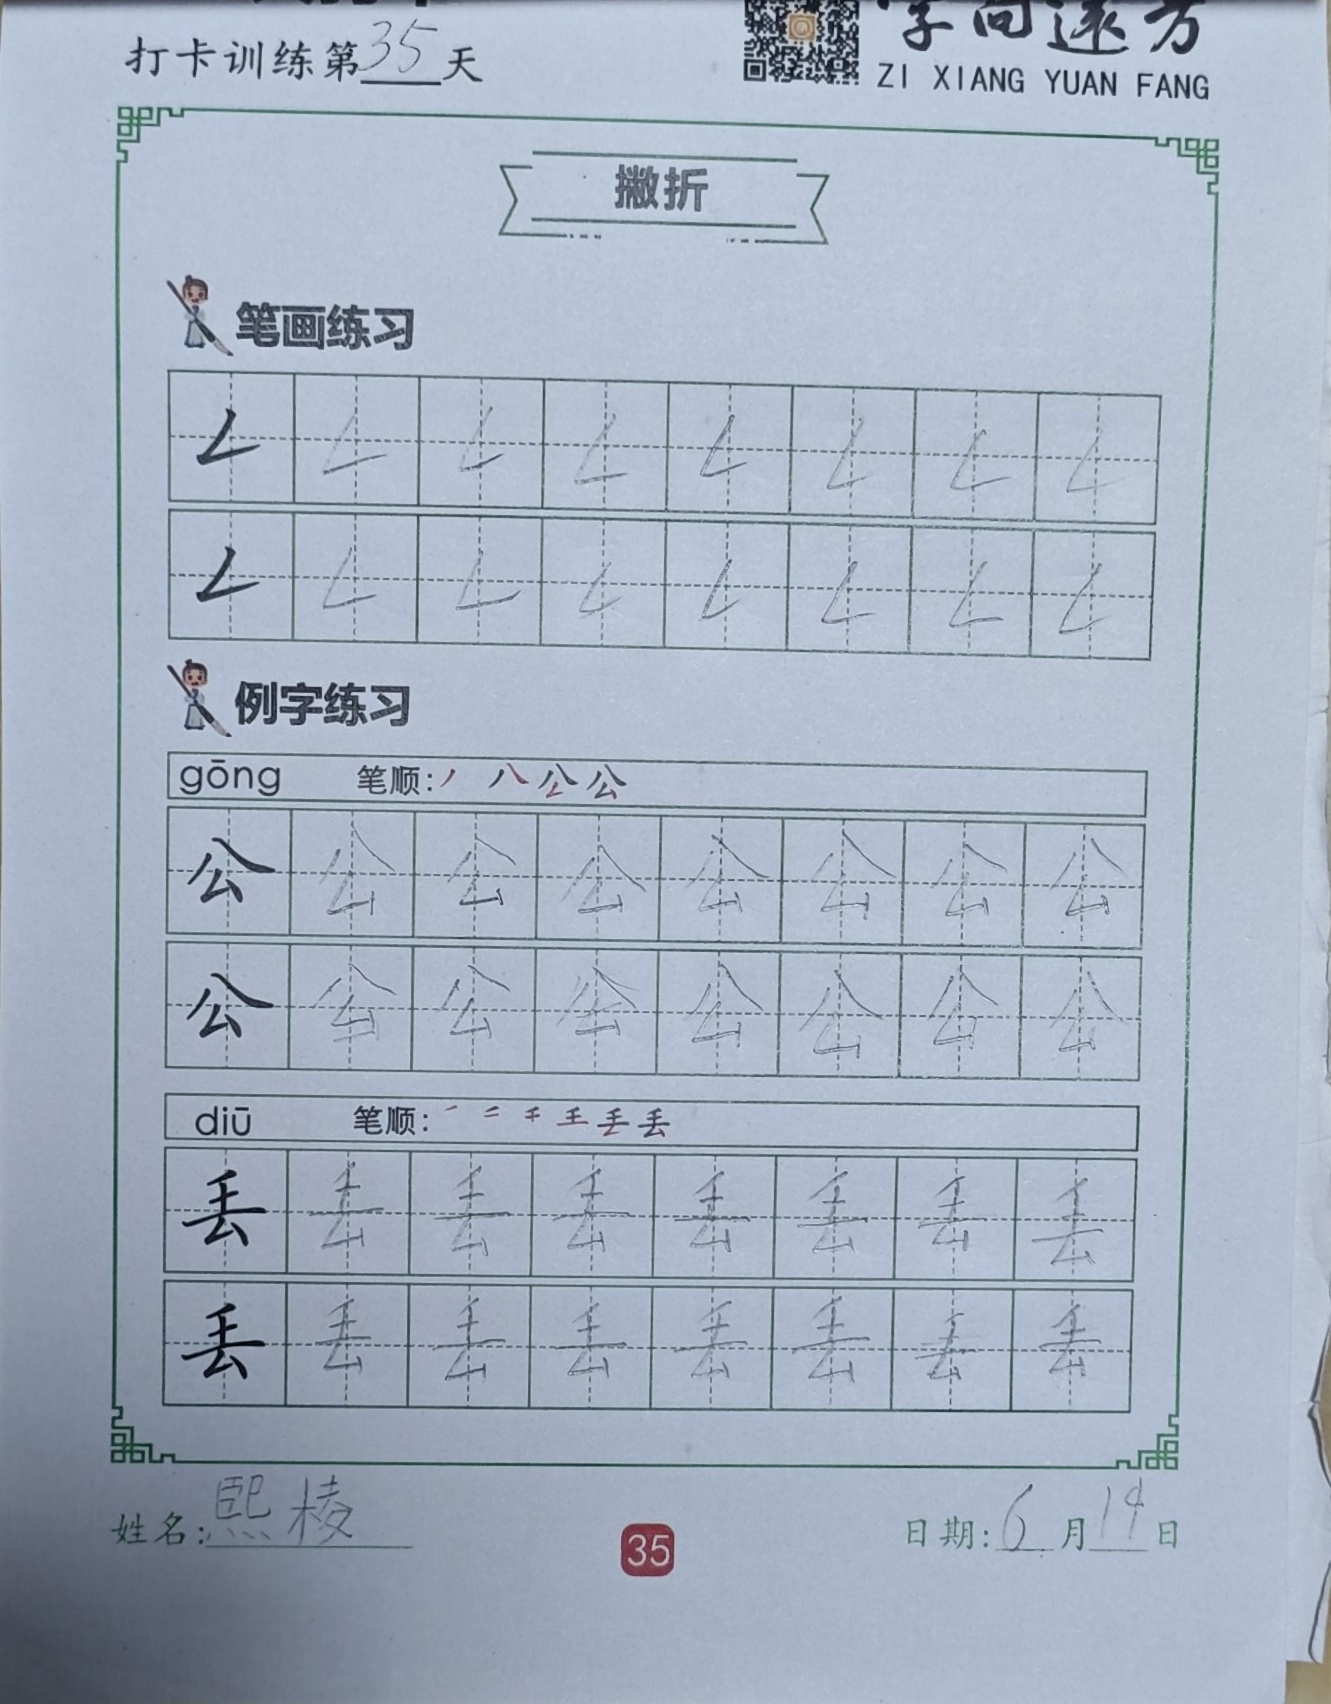 打卡训练第35天
字向远方
ZI XIANG YUAN FANG
撇折
笔画练习
例字练习
gōng 笔顺:
公 公 公 公 公 公 公 公
公 公 公 公 公 公 公 公
diū 笔顺:
丢 丢 丢 丢 丢 丢 丢 丢
丢 丢 丢 丢 丢 丢 丢 丢
姓名:熙棱
35
日期:6月19日